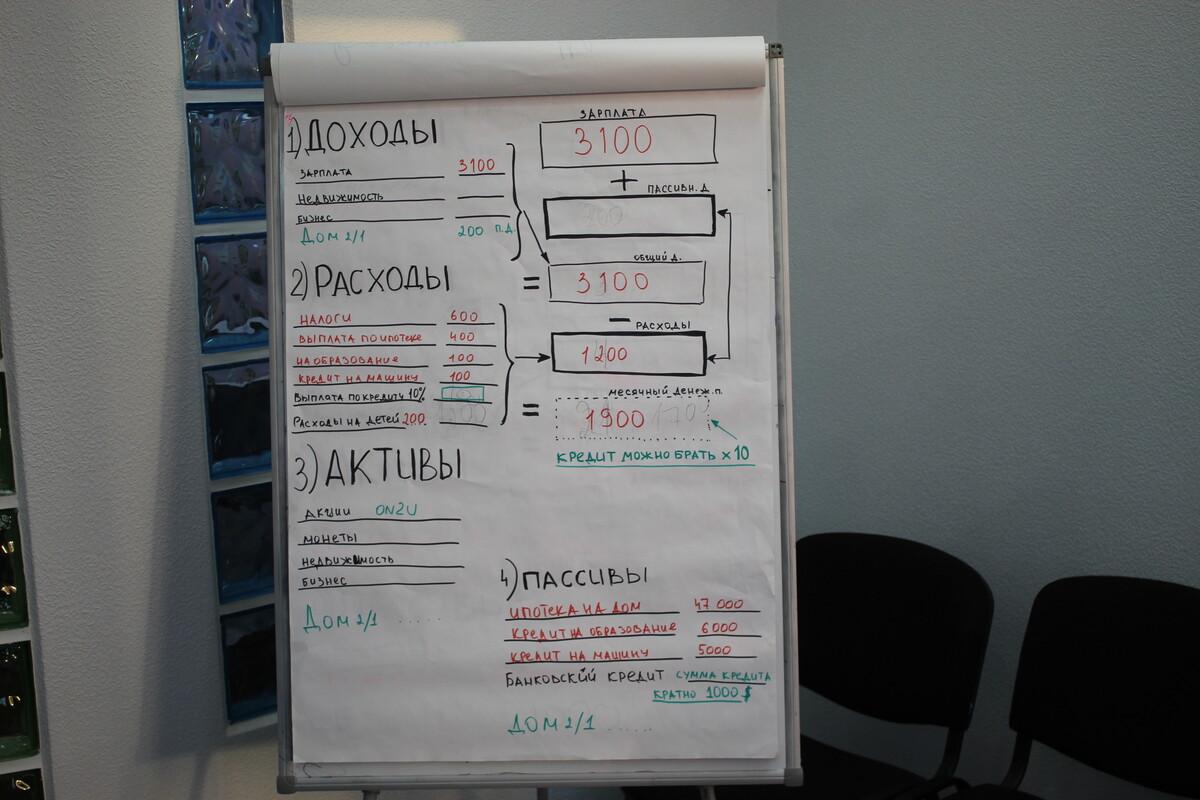 1) ДОХОДЫ
ЗАРПЛАТА 3100
НЕДВИЖИМОСТЬ
БИЗНЕС
ДОМ 2/1 200 П.Д.
2) РАСХОДЫ
НАЛОГИ 600
ВЫПЛАТА ПО ИПОТЕКЕ 400
НА ОБРАЗОВАНИЕ 100
КРЕДИТ НА МАШИНУ 100
ВЫПЛАТА ПО КРЕДИТУ 10%
РАСХОДЫ НА ДЕТЕЙ 200
3) АКТИВЫ
АКЦИИ ON2U
МОНЕТЫ
НЕДВИЖИМОСТЬ
БИЗНЕС
ДОМ 2/1 .....
ЗАРПЛАТА
3100
+
ПАССИВН. Д
ОБЩИЙ Д.
= 3100
— РАСХОДЫ
1200
МЕСЯЧНЫЙ ДЕНЕЖ. П.
= 1900
КРЕДИТ МОЖНО БРАТЬ х 10
4) ПАССИВЫ
ИПОТЕКА НА ДОМ 47 000
КРЕДИТ НА ОБРАЗОВАНИЕ 6000
КРЕДИТ НА МАШИНУ 5000
БАНКОВСКИЙ КРЕДИТ СУММА КРЕДИТА
КРАТНО 1000 $
ДОМ 2/1 ......